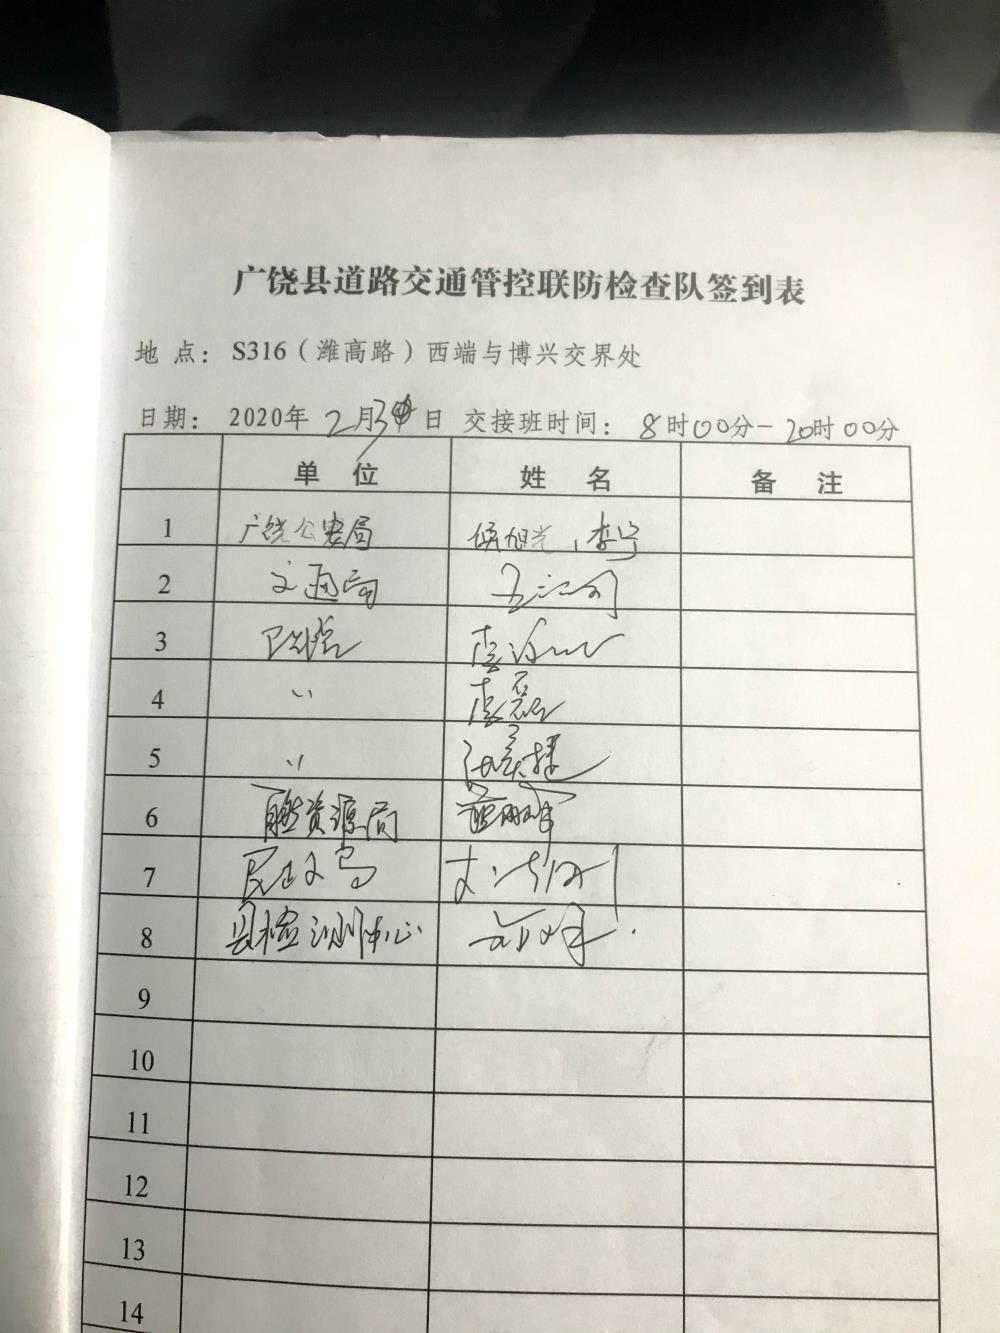 广饶县道路交通管控联防检查队签到表
地 点： S316（潍高路）西端与博兴交界处
日期： 2020年 2月3日 交接班时间： 8时00分－20时00分
单 位 姓 名 备 注
1 广饶公安局 侯旭光、李宁
2 交通局
3 卫生院
4 〃
5 〃
6 自然资源局
7 民政局
8 县检测中心
9
10
11
12
13
14